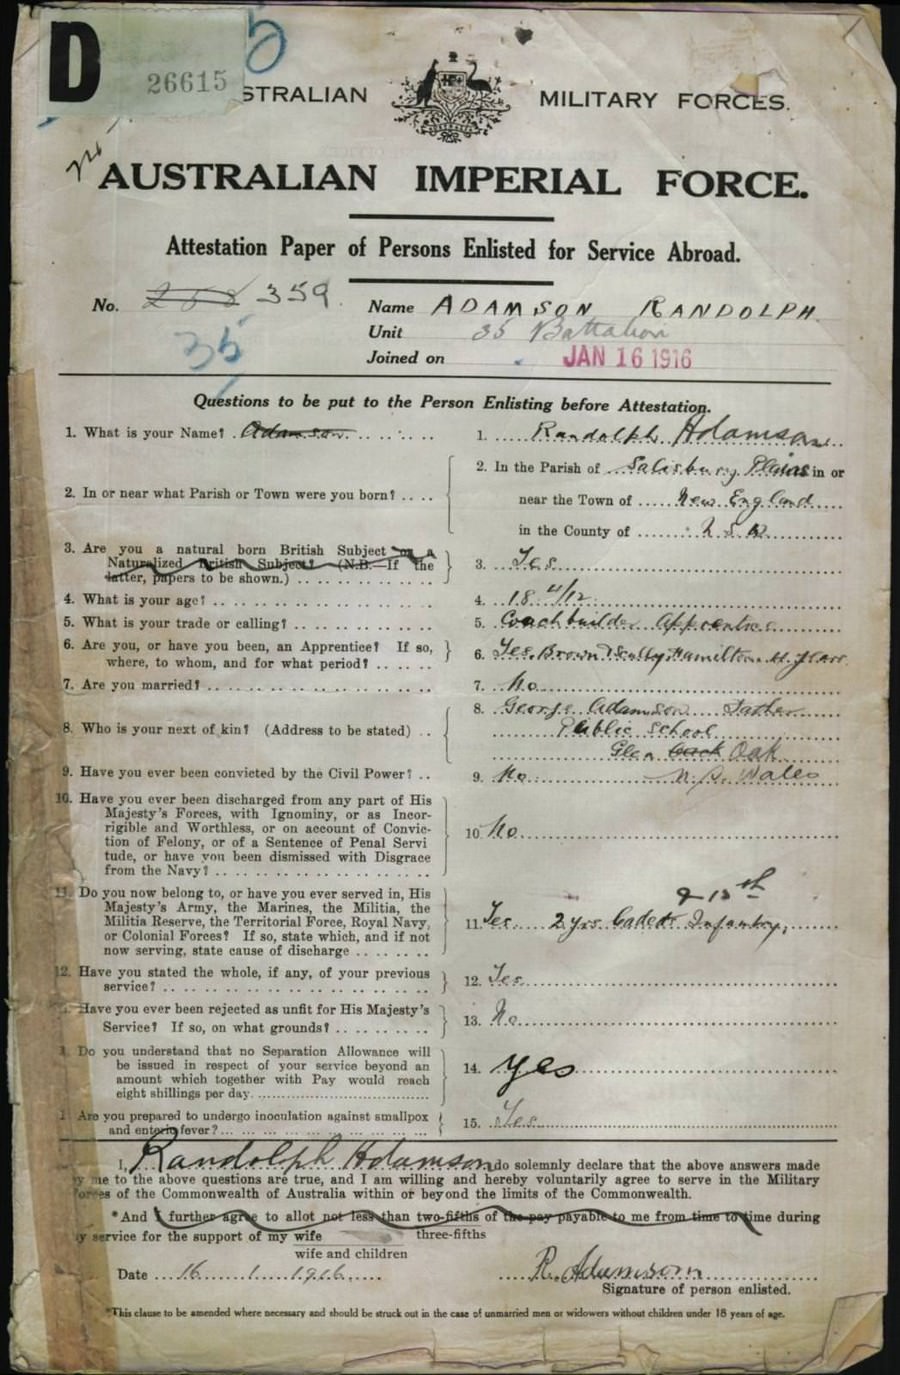 D
26615
5
STRALIAN MILITARY FORCES.
AUSTRALIAN IMPERIAL FORCE.
Attestation Paper of Persons Enlisted for Service Abroad.
No. 258 359.
Name ADAMSON RANDOLPH
35
Unit 35 Battalion
Joined on JAN 16 1916
Questions to be put to the Person Enlisting before Attestation.
1. What is your Name? Adamson
1. Randolph Adamson
2. In or near what Parish or Town were you born?
2. In the Parish of Salisbury Plains in or
near the Town of New England
in the County of N S W
3. Are you a natural born British Subject or a
Naturalized British Subject? (N.B.—If the
latter, papers to be shown.)
3. Yes
4. What is your age?
4. 18 4/12
5. What is your trade or calling?
5. Coachbuilder Apprentice
6. Are you, or have you been, an Apprentice? If so,
where, to whom, and for what period?
6. Yes. Brown & Scully Hamilton
7. Are you married?
7. No
8. Who is your next of kin? (Address to be stated)
8. George Adamson Father
Public School
Glen Oak
N. S. Wales
9. Have you ever been convicted by the Civil Power?
9. No
10. Have you ever been discharged from any part of His
Majesty's Forces, with Ignominy, or as Incor-
rigible and Worthless, or on account of Convic-
tion of Felony, or of a Sentence of Penal Servi
tude, or have you been dismissed with Disgrace
from the Navy?
10. No
11. Do you now belong to, or have you ever served in, His
Majesty's Army, the Marines, the Militia, the
Militia Reserve, the Territorial Force, Royal Navy,
or Colonial Forces? If so, state which, and if not
now serving, state cause of discharge
11. Yes 2 yrs Cadets Infantry
12. Have you stated the whole, if any, of your previous
service?
12. Yes
Have you ever been rejected as unfit for His Majesty's
Service? If so, on what grounds?
13. No
Do you understand that no Separation Allowance will
be issued in respect of your service beyond an
amount which together with Pay would reach
eight shillings per day.
14. yes
Are you prepared to undergo inoculation against smallpox
and enteric fever?
15. Yes
I, Randolph Adamson do solemnly declare that the above answers made
by me to the above questions are true, and I am willing and hereby voluntarily agree to serve in the Military
Forces of the Commonwealth of Australia within or beyond the limits of the Commonwealth.
*And I further agree to allot not less than two-fifths of the pay payable to me from time to time during
three-fifths
y service for the support of my wife
wife and children
Date 16 1 1916
R. Adamson
Signature of person enlisted.
*This clause to be amended where necessary and should be struck out in the case of unmarried men or widowers without children under 18 years of age.